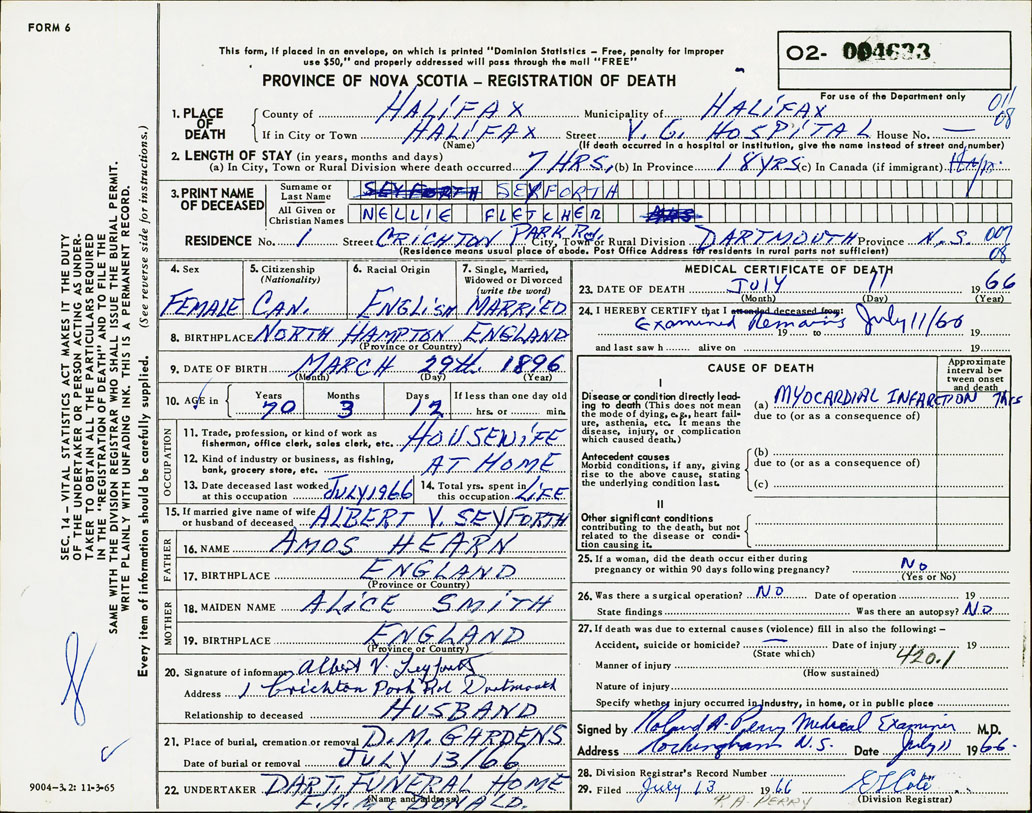 FORM 6
This form, if placed in an envelope, on which is printed "Dominion Statistics – Free, penalty for improper
use $50," and properly addressed will pass through the mail "FREE"
PROVINCE OF NOVA SCOTIA – REGISTRATION OF DEATH
02- 004633
For use of the Department only
011
08
1. PLACE OF DEATH
County of HALIFAX Municipality of HALIFAX
If in City or Town HALIFAX Street V. G. HOSPITAL House No. —
(Name) (If death occurred in a hospital or institution, give the name instead of street and number)
2. LENGTH OF STAY (in years, months and days)
(a) In City, Town or Rural Division where death occurred 7 HRS. (b) In Province 18 YRS (c) In Canada (if immigrant)
3. PRINT NAME OF DECEASED
Surname or Last Name SEYFORTH SEYFORTH
All Given or Christian Names NELLIE FLETCHER
RESIDENCE No. 1 Street CRICHTON PARK Rd. City, Town or Rural Division DARTMOUTH Province N.S. 007
(Residence means usual place of abode. Post Office Address for residents in rural parts not sufficient) 08
4. Sex FEMALE
5. Citizenship (Nationality) CAN.
6. Racial Origin ENGLISH
7. Single, Married, Widowed or Divorced (write the word) MARRIED
8. BIRTHPLACE NORTH HAMPTON ENGLAND
(Province or Country)
9. DATE OF BIRTH MARCH 29th. 1896
(Month) (Day) (Year)
10. AGE in Years 70 Months 3 Days 12 If less than one day old
hrs. or min.
OCCUPATION
11. Trade, profession, or kind of work as
fisherman, office clerk, sales clerk, etc. HOUSEWIFE
12. Kind of industry or business, as fishing,
bank, grocery store, etc. AT HOME
13. Date deceased last worked at this occupation JULY 1966
14. Total yrs. spent in this occupation LIFE
15. If married give name of wife
or husband of deceased ALBERT V. SEYFORTH
FATHER
16. NAME AMOS HEARN
17. BIRTHPLACE ENGLAND
(Province or Country)
MOTHER
18. MAIDEN NAME ALICE SMITH
19. BIRTHPLACE ENGLAND
(Province or Country)
20. Signature of informant Albert V. Seyforth
Address 1 Crichton Park Rd Dartmouth
Relationship to deceased HUSBAND
21. Place of burial, cremation or removal D.M. GARDENS
Date of burial or removal JULY 13/66
22. UNDERTAKER DART. FUNERAL HOME
(Name and address)
E.A. McDONALD.
MEDICAL CERTIFICATE OF DEATH
23. DATE OF DEATH JULY 11 1966
(Month) (Day) (Year)
24. I HEREBY CERTIFY that I attended deceased from:
Examined Remains July 11/66
19 to 19
and last saw h alive on 19
CAUSE OF DEATH
Approximate interval between onset and death
I
Disease or condition directly leading to death (This does not mean
the mode of dying, e.g., heart failure, asthenia, etc. It means the
disease, injury, or complication
which caused death.)
(a) MYOCARDIAL INFARCTION 7hrs
due to (or as a consequence of)
Antecedent causes
Morbid conditions, if any, giving
rise to the above cause, stating
the underlying condition last.
(b)
due to (or as a consequence of)
(c)
II
Other significant conditions
contributing to the death, but not
related to the disease or condition causing it.
25. If a woman, did the death occur either during
pregnancy or within 90 days following pregnancy? No
(Yes or No)
26. Was there a surgical operation? NO Date of operation 19
State findings Was there an autopsy? NO
27. If death was due to external causes (violence) fill in also the following: –
Accident, suicide or homicide? — Date of injury 19
(State which) 420.1
Manner of injury
(How sustained)
Nature of injury
Specify whether injury occurred in industry, in home, or in public place
Signed by Roland A. Perry Medical Examiner M.D.
Address Rockingham N.S. Date July 11 1966.
28. Division Registrar's Record Number
29. Filed July 13 1966
(Division Registrar)
R. A. PERRY
SEC. 14 – VITAL STATISTICS ACT MAKES IT THE DUTY
OF THE UNDERTAKER OR PERSON ACTING AS UNDER-
TAKER TO OBTAIN ALL THE PARTICULARS REQUIRED
IN THE "REGISTRATION OF DEATH" AND TO FILE THE
SAME WITH THE DIVISION REGISTRAR WHO SHALL ISSUE THE BURIAL PERMIT.
WRITE PLAINLY WITH UNFADING INK. THIS IS A PERMANENT RECORD.
Every item of information should be carefully supplied. (See reverse side for instructions.)
9004-3.2: 11-3-65